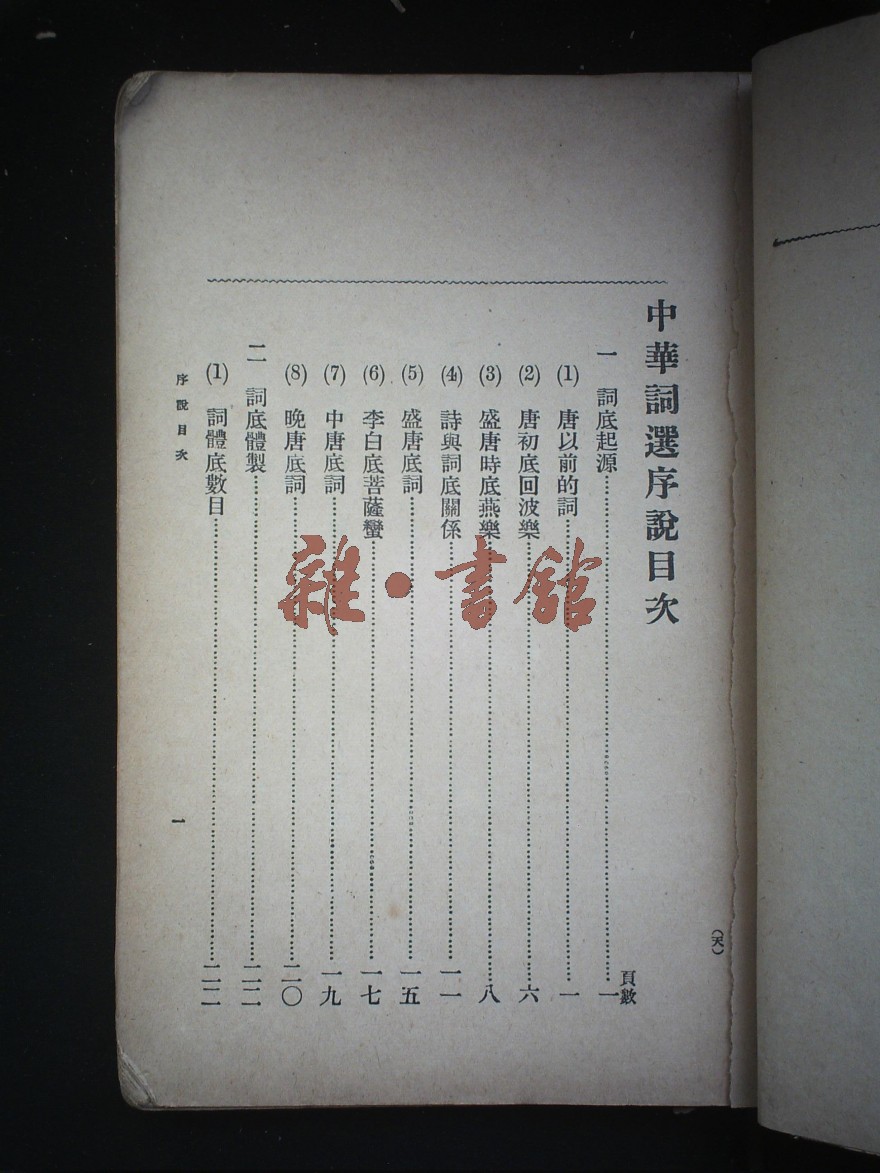 中華詞選序說目次
頁數
一 詞底起源 一
(1) 唐以前的詞 一
(2) 唐初底回波樂 六
(3) 盛唐時底燕樂 八
(4) 詩與詞底關係 一一
(5) 盛唐底詞 一五
(6) 李白底菩薩蠻 一七
(7) 中唐底詞 一九
(8) 晚唐底詞 二〇
二 詞底體製 二二
(1) 詞體底數目 二二
序說目次
一
(天)
雜·書館